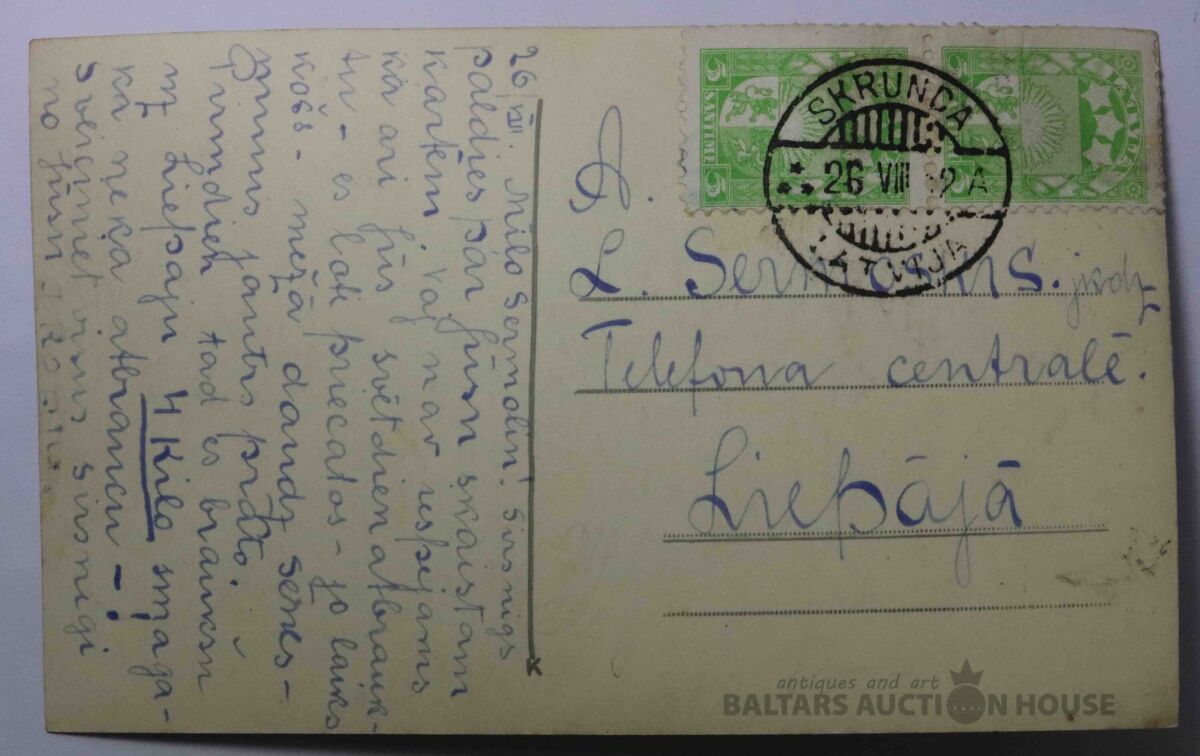 26 VIII. Milo Sermolin! Sirsnigs
paldies par Jūsu skaistam
kartem. Vaj nav iespejams
ka ari Jūs svētdien atbrauk-
tu - es loti priecatos - jo laiks
košs - mežā daudz senes -
mums jautrs prāto.
Pirmdien tad es braukšu
uz Liepaju 4 Kilo smaga-
ka neka atbraucu - !
Sveicinet visus sirsnigi
no Jūsu
5 SANTIMI 5
5 LATVIJA 5
SKRUNDA
26 VIII 32 A
LATVIJA
L. jkdz.
Telefona centralē.
Liepājā
antiques and art
BALTARS AUCTION HOUSE